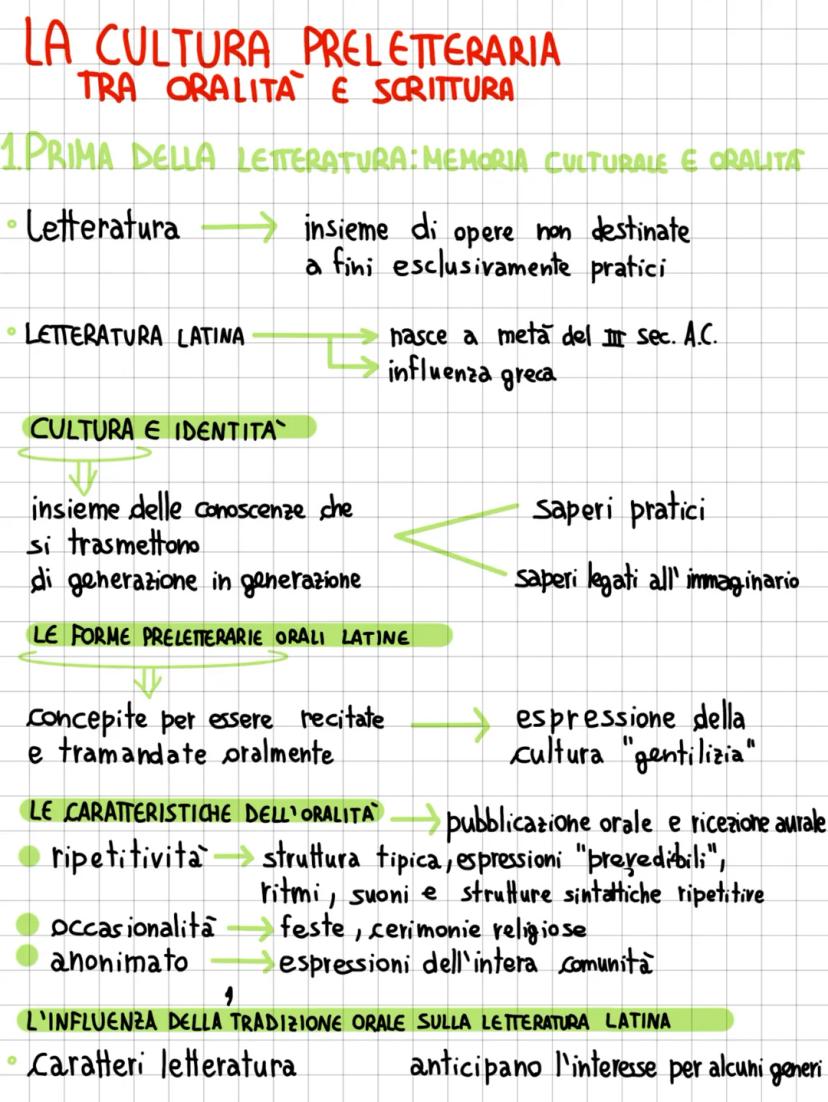 LA CULTURA PRELETTERARIA
TRA ORALITÀ E SCRITTURA
1. PRIMA DELLA LETTERATURA: MEMORIA CULTURALE E ORALITÀ
Letteratura → insieme di opere non destinate
a fini esclusivamente pratici
LETTERATURA LATINA → nasce a metà del III sec. A.C.
→ influenza greca
CULTURA E IDENTITÀ
insieme delle conoscenze che
si trasmettono
di generazione in generazione
saperi pratici
saperi legati all'immaginario
LE FORME PRELETTERARIE ORALI LATINE
concepite per essere recitate
e tramandate oralmente
→ espressione della
cultura "gentilizia"
LE CARATTERISTICHE DELL'ORALITÀ → pubblicazione orale e ricezione aurale
ripetitività → struttura tipica, espressioni "prevedibili",
ritmi, suoni e strutture sintattiche ripetitive
occasionalità → feste, cerimonie religiose
anonimato → espressioni dell'intera comunità
L'INFLUENZA DELLA TRADIZIONE ORALE SULLA LETTERATURA LATINA
Caratteri letteratura anticipano l'interesse per alcuni generi